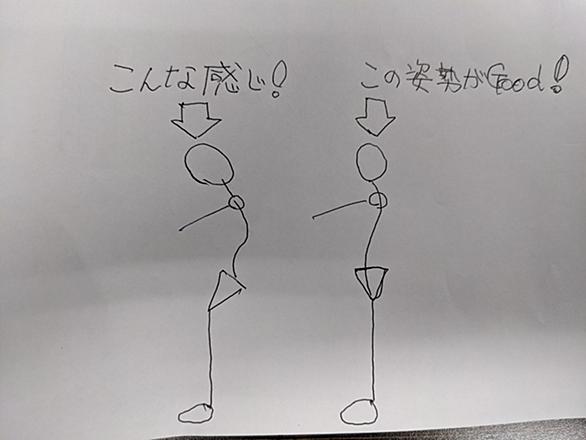 こんな感じ!
この姿勢がGood!